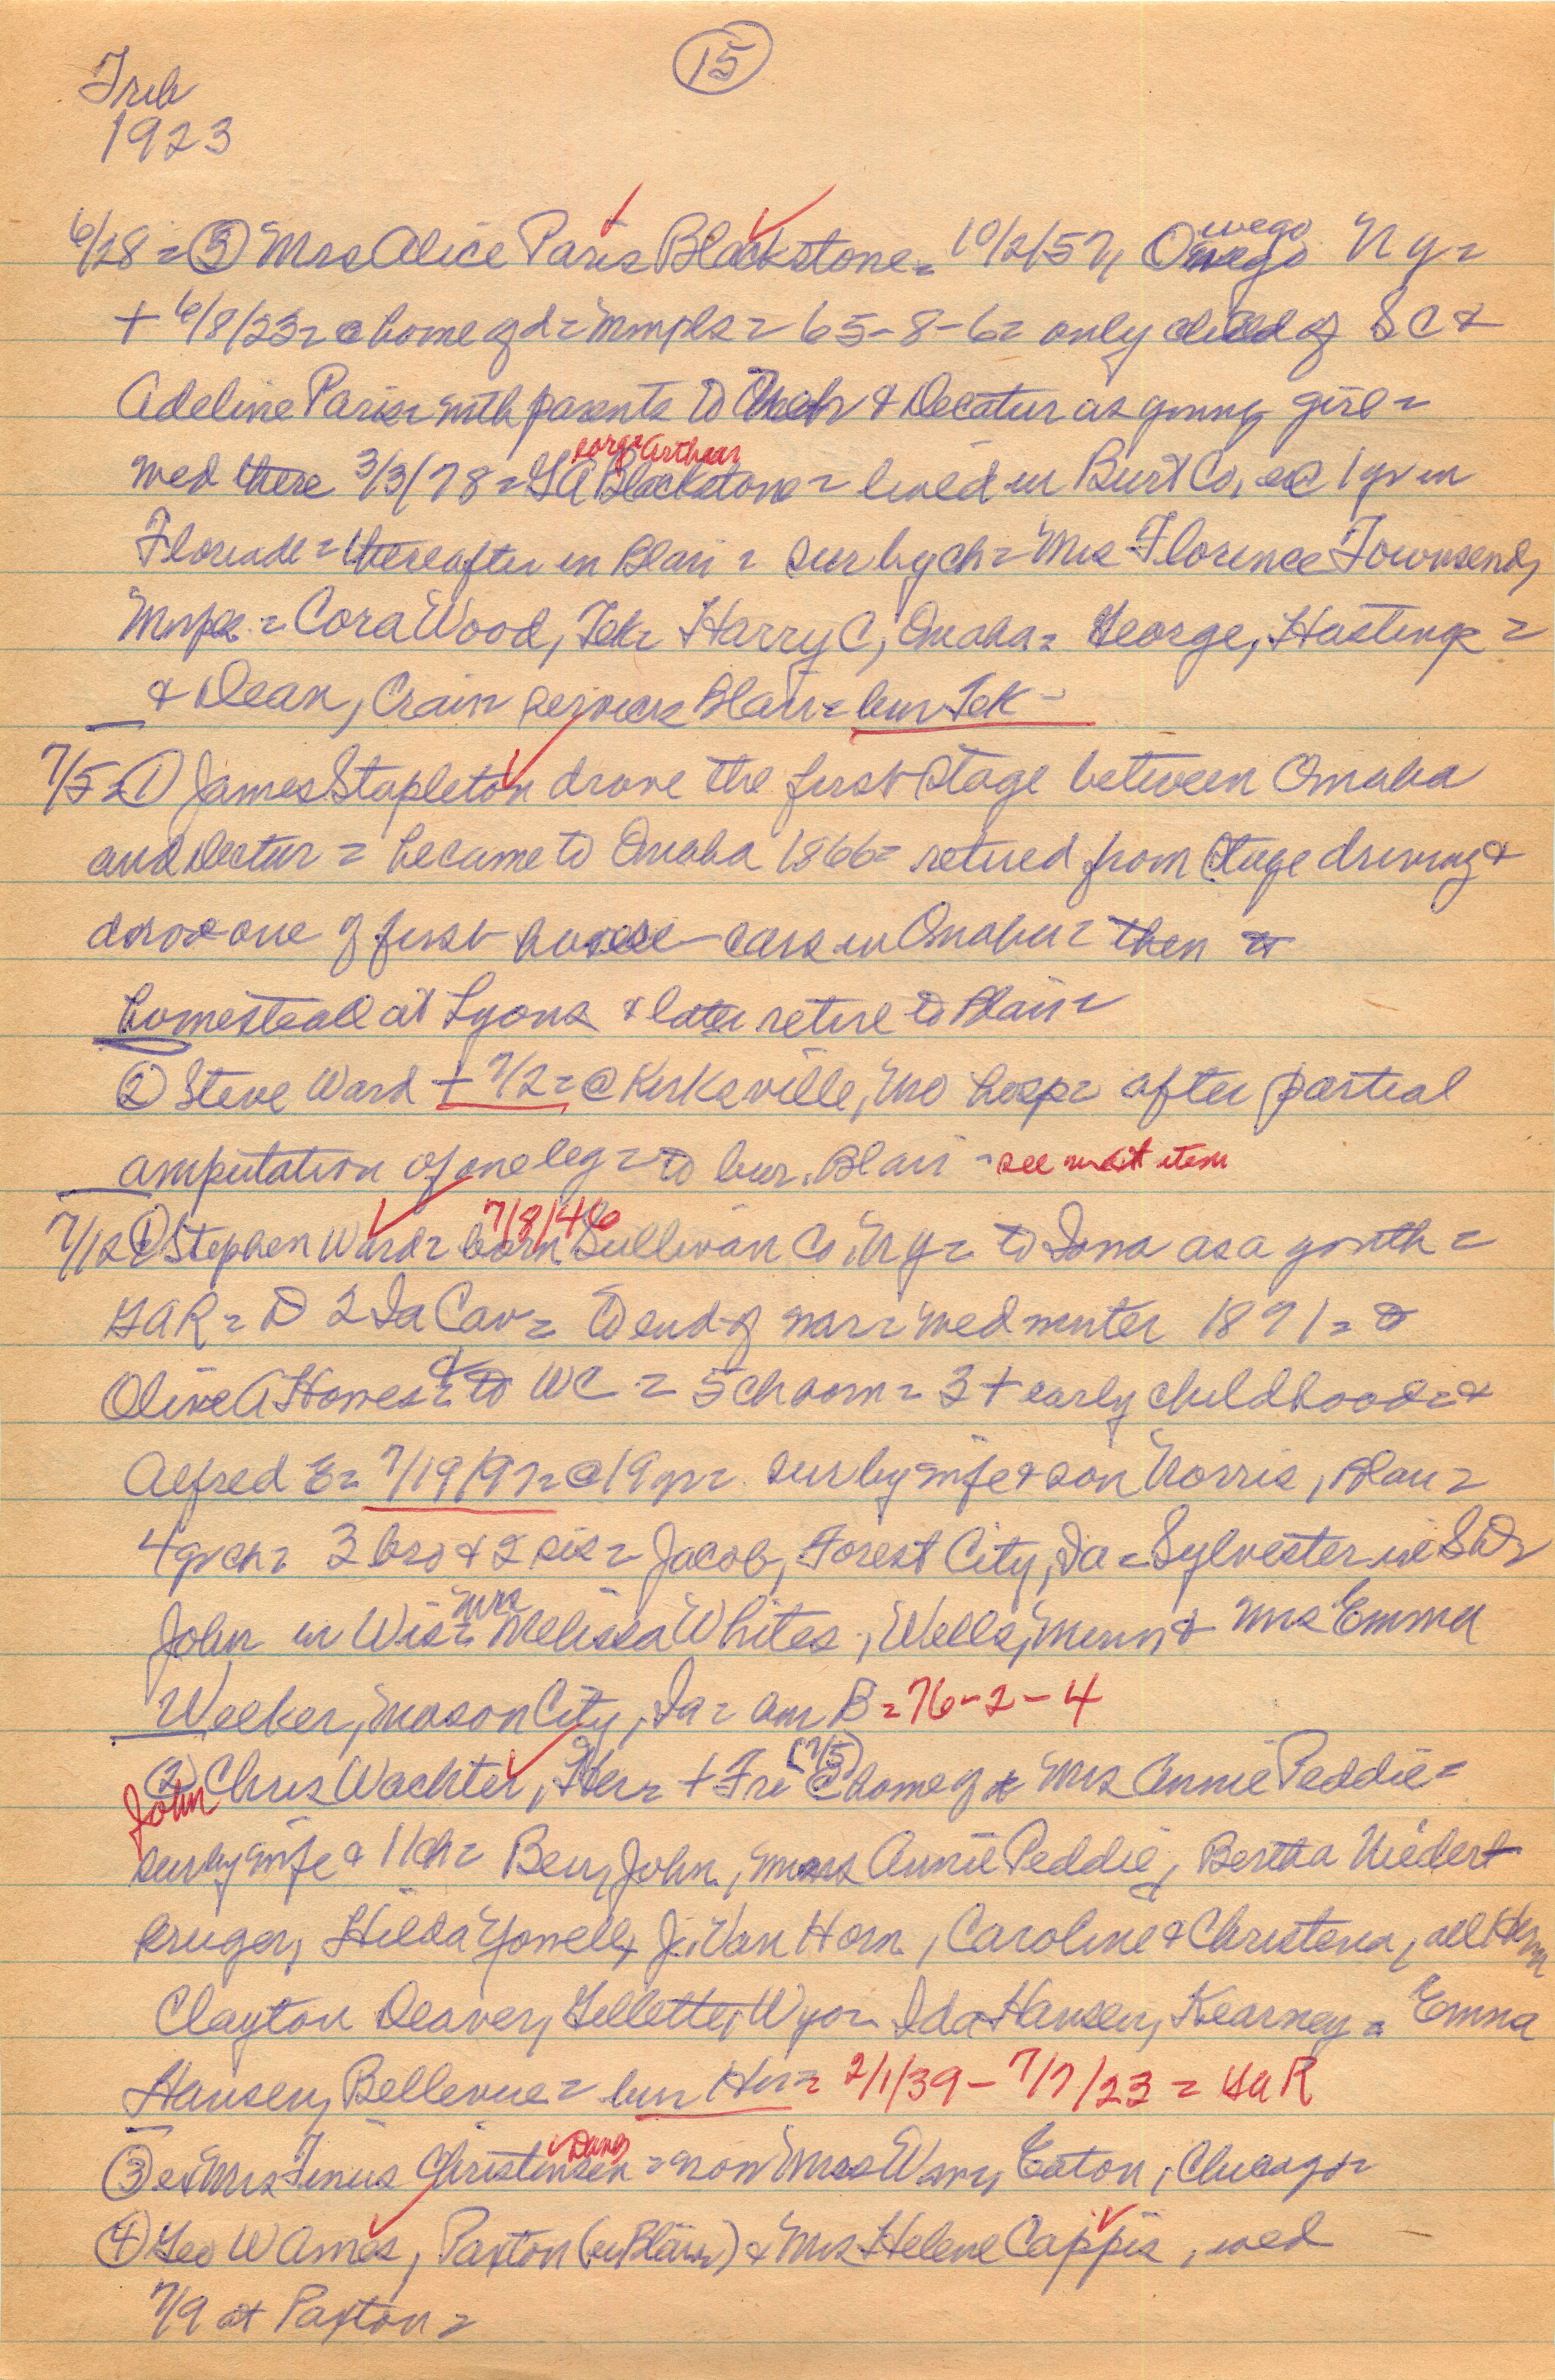 15
Trib
1923
6/28 = ③ Mrs Alice Paris Blackstone = 10/2/57, Owego N Y =
+ 6/8/23 = @ home of d = Mmpls = 65-8-6 = only child of S C &
Adeline Paris = with parents to & Decatur as young girl =
wed there 3/3/78 = G A Blackstone = lived in Burt Co, 1 yr in
eorge Arthur
= thereafter in Blair = sur by ch = Mrs Florence Townsend,
Mnpls = Cora Wood, Tek = Harry C, Omaha = George, Hastings =
& Dean, Craig = services Blair = bur Tek -
7/5 = ① James Stapleton drove the first stage between Omaha
and Decatur = he came to Omaha 1866 = retired from stage driving &
drove one of first horse cars in Omaha = then to
homestead at Lyons & later retire to Blair =
② Steve Ward + 7/2 = @ Kirksville, Mo hosp = after partial
amputation of one leg = to bur. Blair - see next item
7/12 ① Stephen Ward = born 7/8/46 Sullivan Co, N Y = to Iowa as a youth =
GAR = D 2 Ia Cav = to end of war = wed winter 1871 = to
Olive A Howes = & to WC = 5 ch born = 3 + early childhood = &
Alfred E = 7/19/97 = @ 19 yr = sur by wife & son Norris, Blair =
4 gr ch = 3 bro & 2 sis = Jacob, Forest City, Ia = Sylvester in SD =
John in Wis = Mrs Melissa Whites, Wells, Minn & Mrs Emma
Weeker, Mason City, Ia = bur B = 76-2-4
② Chris Wachter, Her = + Fri (7/5) @ home of Mrs Annie Peddie =
John
sur by wife & 11 ch = Ben, John, mmes Annie Peddie, Bertha Niedert
kruger, Hilda Yowell, J. Van Horn, Caroline & Christena, all Her
Clayton Deaver, Gillette, Wyo = Ida Hansen, Kearney = Emma
Hansen, Bellevue = bur Her = 2/1/39 - 7/7/23 = GAR
③ ex Mrs Tinus Christensen = now Mrs Eaton, Chicago =
④ Geo W Ames, Paxton (ex Blair) & Mrs Helene Cappis, wed
7/9 at Paxton =